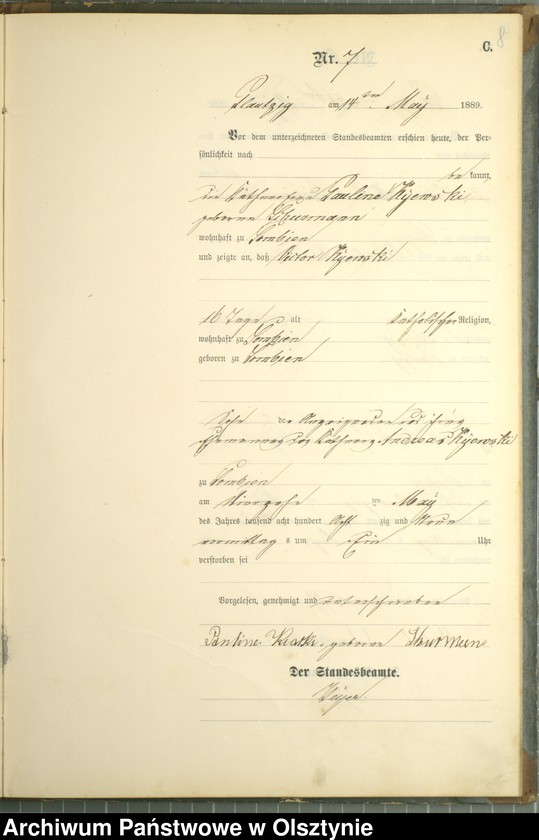 C. 8
Nr. 7
Plautzig am 14ten May 1889.
Vor dem unterzeichneten Standesbeamten erschien heute, der Per-
sönlichkeit nach
bekannt,
die Käthnerfrau Pauline Kijewski,
geborene
wohnhaft zu Lembien
und zeigte an, daß Victor Kijewski
16 Tage alt katholischer Religion,
wohnhaft zu Lembien
geboren zu Lembien
Sohn der Anzeigenden und ihres
Ehemannes des Andreas Kijewski
zu Lembien
am Vierzehn ten May
des Jahres tausend acht hundert Acht zig und Neun
vormittag s um Ein Uhr
verstorben sei
Vorgelesen, genehmigt und unterschrieben
Pauline geborne
Der Standesbeamte.
Archiwum Państwowe w Olsztynie